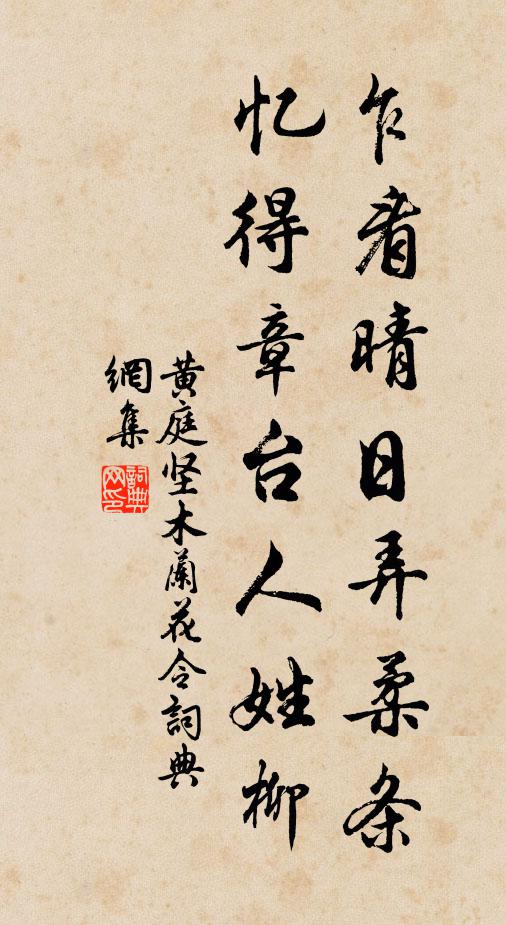 乍看晴日弄柔条
忆得章台人姓柳
黄庭坚木蘭花令詞典
網集
詞典网印